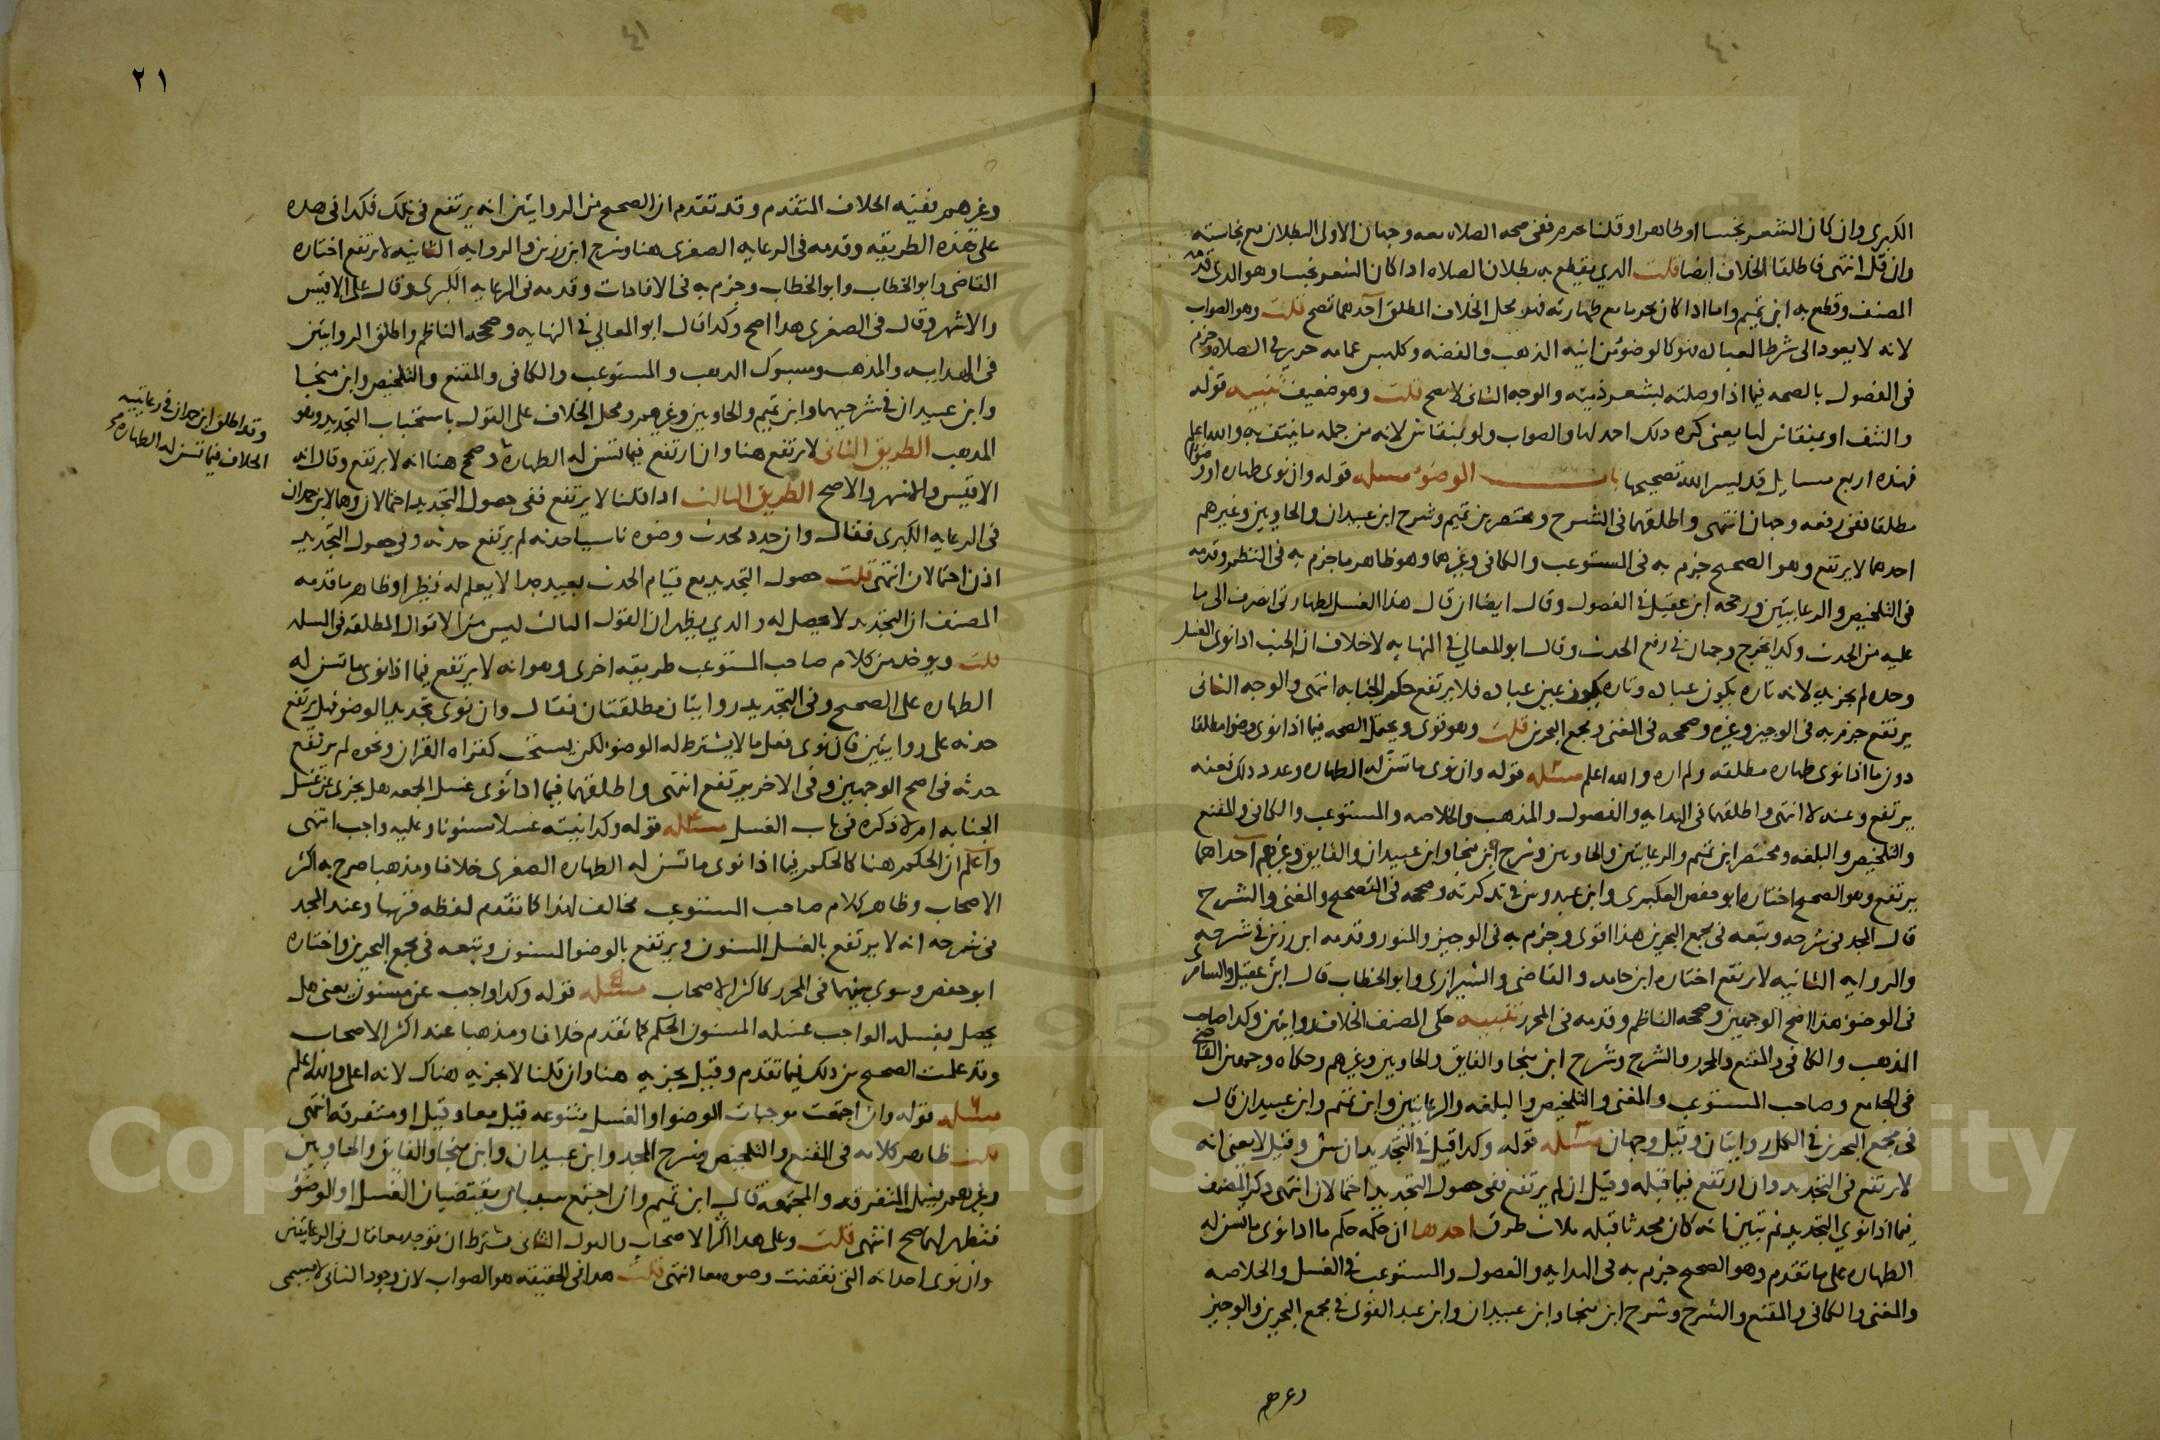 الكبرى وان كان الشعر نجسا او طاهرا وقلنا يحرم ففي صحه الصلاه معه وجهان الاولى البطلان مع نجاسته
وان قل انتهى فاطلقا الخلاف ايضا قلت الذي يقطع به بطلان الصلاه اذا كان الشعر نجسا وهو الذي قدمه
المصنف وقطع به ابن تميم واما اذا كان محرما مع طهارته فهو محل الخلاف المطلق احدهما تصح قلت وهو الصواب
لانه لا يعود الى شرط العباده فهو كالوضوء من انيه الذهب والفضه وكلبس عمامه حرير في الصلاه وجزم
في الفصول بالصحه فيما اذا وصلته بشعر ذميه والوجه الثاني لا تصح قلت وهو ضعيف تنبيه قوله
والنتف او بمنقاش لها يعني كره ذلك احمد لها والصواب ولو بمنقاش لانه من جمله ما ينتف به والله اعلم
فهذه اربع مسايل قد يسر الله تصحيحها باب الوضوء مسله قوله وان نوى طهاره او وضوا
مطلقا ففي رفعه وجهان انتهى واطلقهما في الشرح ومختصر ابن تميم وشرح ابن عبيدان والحاويين وغيرهم
احدهما لا يرتفع وهو الصحيح جزم به في المستوعب والكافي وغيرهما وهو ظاهر ما جزم به في النظم وقدمه
في التلخيص والرعايتين ورجحه ابن عقيل في الفصول وقال ايضا ان قال هذا الغسل لطهارتي انصرف الى ما
عليه من الحدث وكذا يخرج وجهان في رفع الحدث وقال ابو المعالي في النهايه لا خلاف ان الجنب اذا نوى الغسل
وحده لم يجزيه لانه تاره يكون عباده وتاره يكون غير عباده فلا يرتفع حكم الجنابه انتهى والوجه الثاني
يرتفع جزم به في الوجيز وغيره وصححه في المغني ومجمع البحرين قلت وهو قوى ويحتمل الصحه فيما اذا نوى وضوا مطلقا
دون ما اذا نوى طهاره مطلقه ولم اره والله اعلم مسئله قوله وان نوى ما تسن له الطهاره وعدد ذلك فعنه
يرتفع وعنه لا انتهى واطلقهما في الهدايه والفصول والمذهب والخلاصه والمستوعب والكافي والمقنع
والتلخيص والبلغه ومختصر ابن تميم والرعايتين والحاويين وشرح ابن منجا وابن عبيدان والفايق وغيرهم احداهما
يرتفع وهو الصحيح اختاره ابو حفص العكبرى وابن عبدوس في تذكرته وصححه في التصحيح والمغني والشرح
قال المجد في شرحه وتبعه في مجمع البحرين هذا اقوى وجزم به في الوجيز والمنور وقدمه ابن رزين في شرحه
والروايه الثانيه لا يرتفع اختاره ابن حامد والقاضي والشيرازى وابو الخطاب قال ابن عقيل والسامرى
في الوضوء هذا اصح الوجهين وصححه الناظم وقدمه في المحرر تنبيه حكى المصنف الخلاف روايتين وكذا صاحب
المذهب والكافي والمقنع والمحرر والشرح وشرح ابن منجا والفايق والحاويين وغيرهم وحكاه وجهين القاضي
في الجامع وصاحب المستوعب والمغني والتلخيص والبلغه والرعايتين وابن تميم وابن عبيدان قال
في مجمع البحرين في الكل روايتان وقيل وجهان مسئله قوله وكذا قيل في التجديد ان سن وقيل لا يعني انه
لا يرتفع في التجديد وان ارتفع فيما قبله وقيل ان لم يرتفع ففي حصول التجديد احتمالان انتهى ذكر المصنف
فيما اذا نوى التجديد ثم تبين انه كان محدثا قبله ثلاث طرق احدها ان حكمه حكم ما اذا نوى ما تسن له
الطهاره على ما تقدم وهو الصحيح جزم به في الهدايه والفصول والمستوعب في الغسل والخلاصه
والمغني والكافي والمقنع والشرح وشرح ابن منجا وابن عبيدان وابن عبد القوى في مجمع البحرين والوجيز
وغيرهم
٤٠
٤١
٢١
وغيرهم ففيه الخلاف المتقدم وقد تقدم ان الصحيح من الروايتين انه يرتفع في تلك فكذا في هذه
على هذه الطريقه وقدمه في الرعايه الصغرى هنا وشرح ابن رزين والروايه الثانيه لا يرتفع اختاره
القاضي وابو الخطاب وابو الخطاب وجزم به في الافادات وقدمه في الرعايه الكبرى وقال على الاقيس
والاشهر وقال في الصغرى هذا اصح وكذا قال ابو المعالي في النهايه وصححه الناظم واطلق الروايتين
في الهدايه والمذهب ومسبوك الذهب والمستوعب والكافي والمقنع والتلخيص وابن منجا
وابن عبيدان في شرحيهما وابن تميم والحاويين وغيرهم ومحل الخلاف على القول باستحباب التجديد وهو
المذهب الطريق الثاني لا يرتفع هنا وان ارتفع فيما تسن له الطهاره وصحح هنا انه لا يرتفع وقال انه
الاقيس والاشهر والاصح الطريق الثالث اذا قلنا لا يرتفع ففي حصول التجديد احتمالان وهما لابن حمدان
في الرعايه الكبرى فقال وان جدد محدث وضوه ناسيا حدثه لم يرتفع حدثه وفي حصول التجديد
اذن احتمالان انتهى قلت حصول التجديد مع قيام الحدث بعيد جدا لا يعلم له نظير او ظاهر ما قدمه
المصنف ان التجديد لا يحصل له والذي يظهر ان القول الثالث ليس من الاقوال المطلقه في المسله
قلت ويوخذ من كلام صاحب المستوعب طريقه اخرى وهو انه لا يرتفع فيما اذا نوى ما تسن له
الطهاره على الصحيح وفي التجديد روايتان مطلقتان فقال وان نوى تجديد الوضو فهل يرتفع
حدثه على روايتين فان نوى فعل ما لا يشترط له الوضو لكن يستحب كقراه القران ونحوه لم يرتفع
حدثه في اصح الوجهين وفي الاخر يرتفع انتهى واطلقهما فيما اذا نوى غسل الجمعه هل يجزي عن غسل
الجنابه ام لا ذكره في باب الغسل مسئله قوله وكذا نيته غسلا مسنونا وعليه واجب انتهى
واعلم ان الحكم هنا كالحكم فيما اذا نوى ما تسن له الطهاره الصغرى خلافا ومذهبا صرح به اكثر
الاصحاب وظاهر كلام صاحب المستوعب مخالف لهذا كما تقدم لفظه فيها وعند المجد
في شرحه انه لا يرتفع بالغسل المسنون ويرتفع بالوضو المسنون وتبعه في مجمع البحرين واختاره
ابو حفص وسوى بينهما في المحرر كاكثر الاصحاب مسئله قوله وكذا واجب عن مسنون يعني هل
يحصل بغسله الواجب غسله المسنون الحكم كما تقدم خلافا ومذهبا عند اكثر الاصحاب
وقد علمت الصحيح من ذلك فيما تقدم وقيل يجزيه هنا وان قلنا لا يجزيه هناك لانه اعلى والله اعلم
مسئله قوله وان اجتمعت موجبات الوضو او الغسل متنوعه قيل معا وقيل او متفرقه انتهى
قلت ظاهر كلامه في المقنع والتلخيص وشرح المجد وابن عبيدان وابن منجا والفايق والحاويين
وغيرهم يشمل المتفرقه والمجتمعه قال ابن تميم وان اجتمع سببان يقتضيان الغسل او الوضوء
فتطهر لهما صح انتهى قلت وعلى هذا اكثر الاصحاب والقول الثاني شرط ان توجد معا قال في الرعايتين
وان نوى احداثه التي نقضت وضوه معا انتهى قلت هذا في الحقيقه هو الصواب لان وجود الثاني لا يسمى
وقد اطلق ابن حمدان في رعايتيه
الخلاف فيما تسن له الطهاره
Copyright © King Saud University